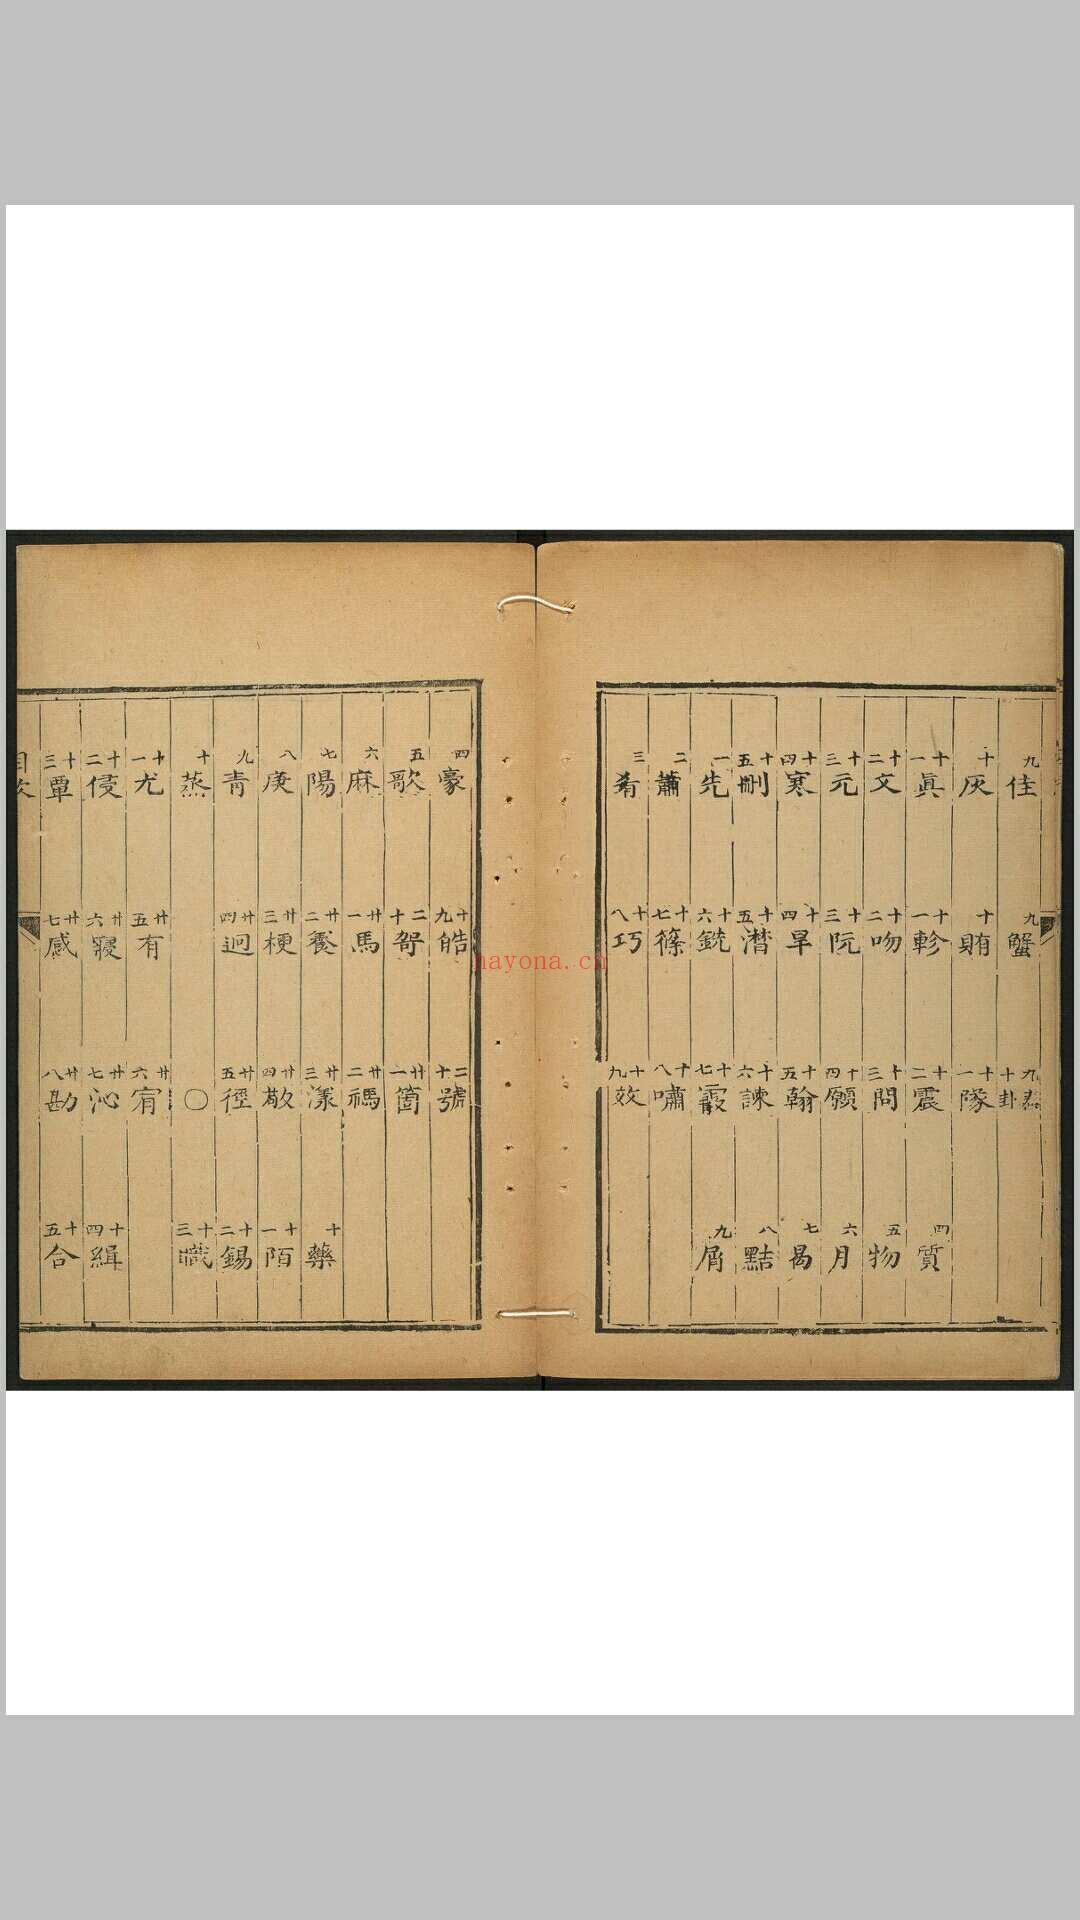 九佳 九蟹 九泰 十卦
十灰 十賄 十一隊
十一眞 十一軫 十二震 四質
十二文 十二吻 十三問 五物
十三元 十三阮 十四願 六月
十四寒 十四旱 十五翰 七曷
十五刪 十五潸 十六諫 八黠
一先 十六銑 十七霰 九屑
二蕭 十七篠 十八嘯
三肴 十八巧 十九效
四豪 十九皓 二十號
五歌 二十哿 廿一箇
六麻 廿一馬 廿二禡
七陽 廿二養 廿三漾 十藥
八庚 廿三梗 廿四敬 十一陌
九青 廿四迥 廿五徑 十二錫
十蒸 〇 十三職
十一尤 廿五有 廿六宥
十二侵 廿六寢 廿七沁 十四緝
十三覃 廿七感 廿八勘 十五合
目次
hayona.cn